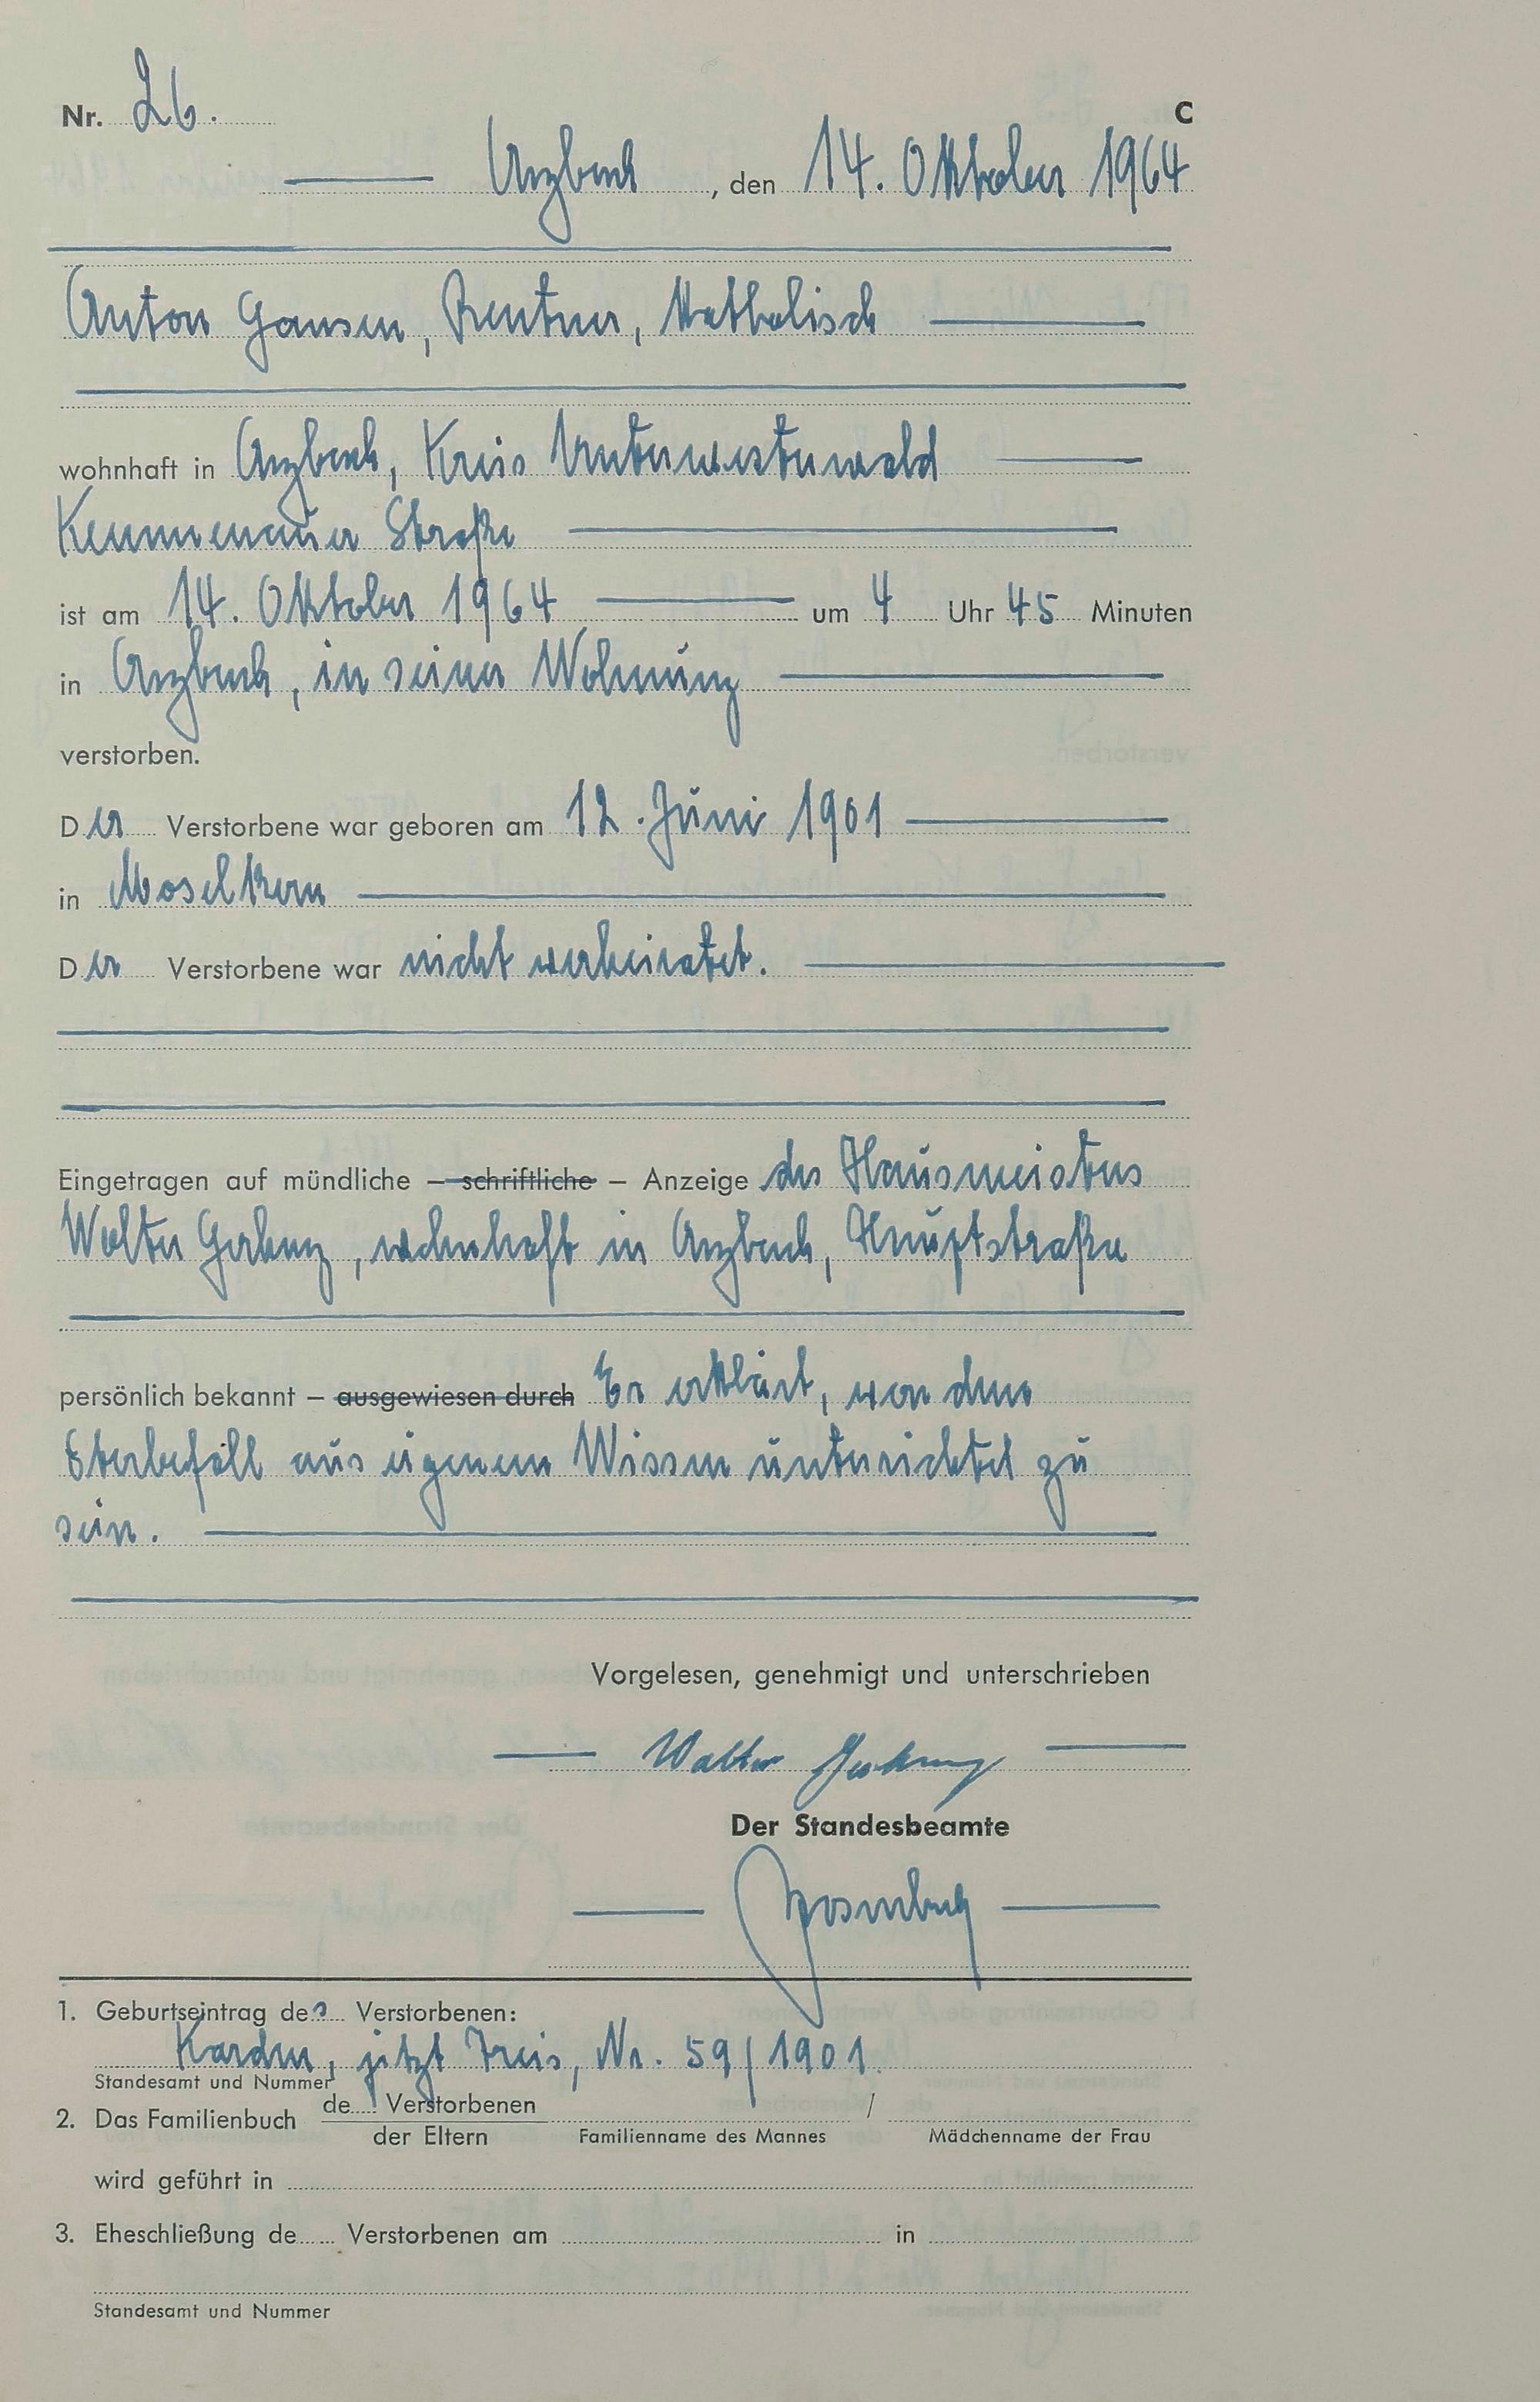 Nr. 26. C
Arzbach, den 14. Oktober 1964
Anton Gansen, Rentner, katholisch
wohnhaft in Arzbach, Kreis Unterwesterwald
Kemmenauer Straße
ist am 14. Oktober 1964 um 4 Uhr 45 Minuten
in Arzbach, in seiner Wohnung
verstorben.
Der Verstorbene war geboren am 12. Juni 1901
in Moselkern
Der Verstorbene war nicht verheiratet.
Eingetragen auf mündliche – schriftliche – Anzeige des Hausmeisters
Walter , wohnhaft in Arzbach, Hauptstraße
persönlich bekannt – ausgewiesen durch Er erklärt, von dem
Sterbefall aus eigenem Wissen unterrichtet zu
sein.
Vorgelesen, genehmigt und unterschrieben
Walter
Der Standesbeamte
1. Geburtseintrag des Verstorbenen:
Karden, jetzt Treis, Nr. 59/1901.
Standesamt und Nummer
2. Das Familienbuch de Verstorbenen /
der Eltern Familienname des Mannes Mädchenname der Frau
wird geführt in
3. Eheschließung de Verstorbenen am in
Standesamt und Nummer